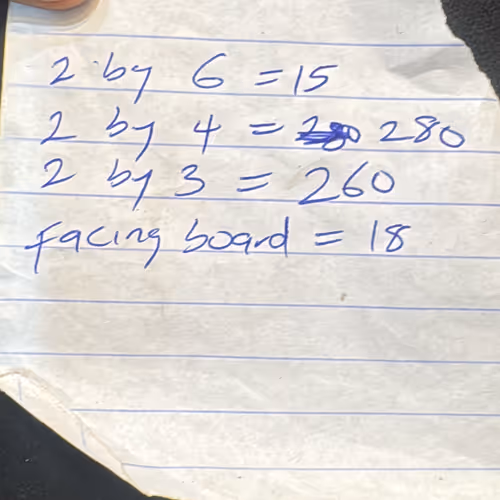 2 by 6 = 15
2 by 4 = 280
2 by 3 = 260
Facing board = 18